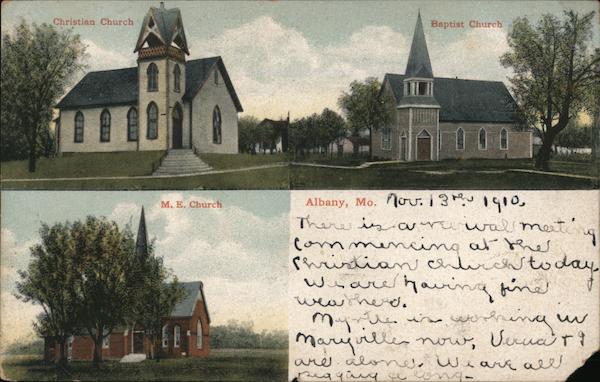 Christian Church
Baptist Church
M. E. Church
Albany, Mo. Nov. 13th 1910
There is a revival meeting
Commencing at the
Christian church today.
We are having fine
weather.
Myrtle is working in
Maryville now, Verna & I
are alone. We are all
pegging along.